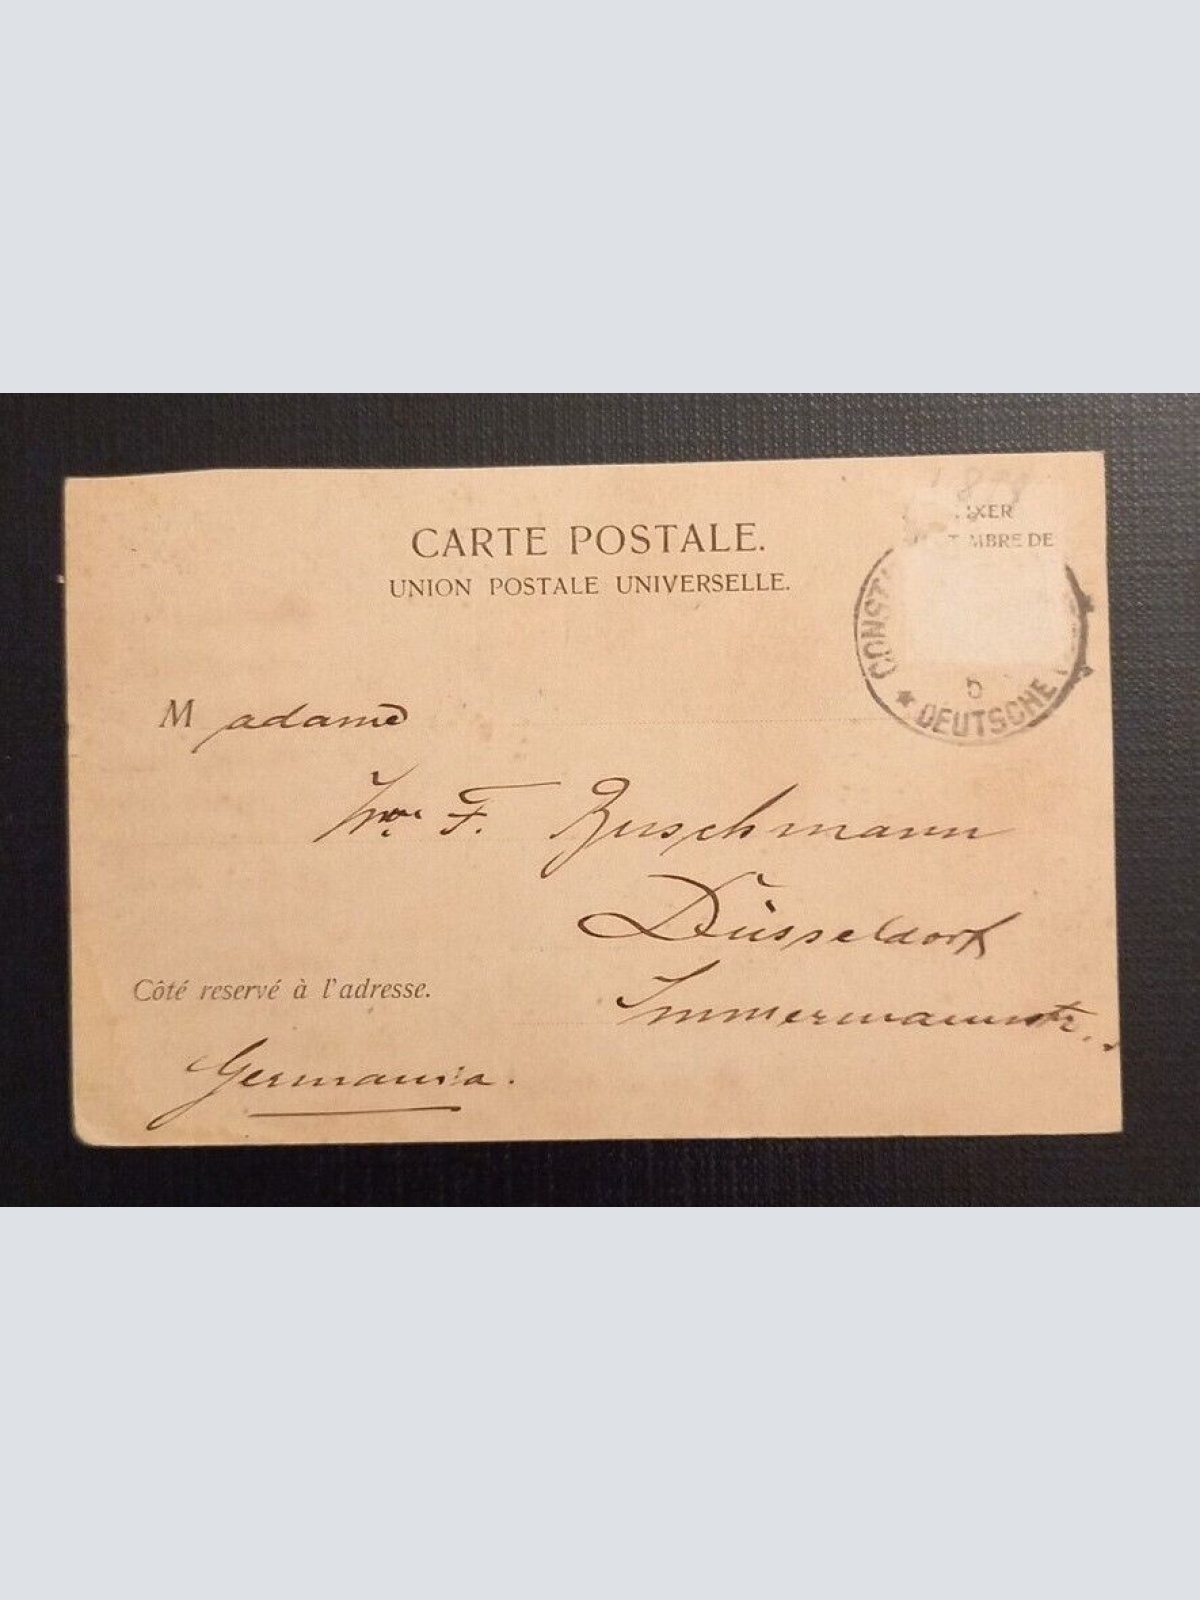 CARTE POSTALE.
UNION POSTALE UNIVERSELLE.
MBRE DE
CONST
5
★ DEUTSCHE
Madame
F. Buschmann
Düsseldorf
Immermannstr.
Côté reservé à l'adresse.
Germania.